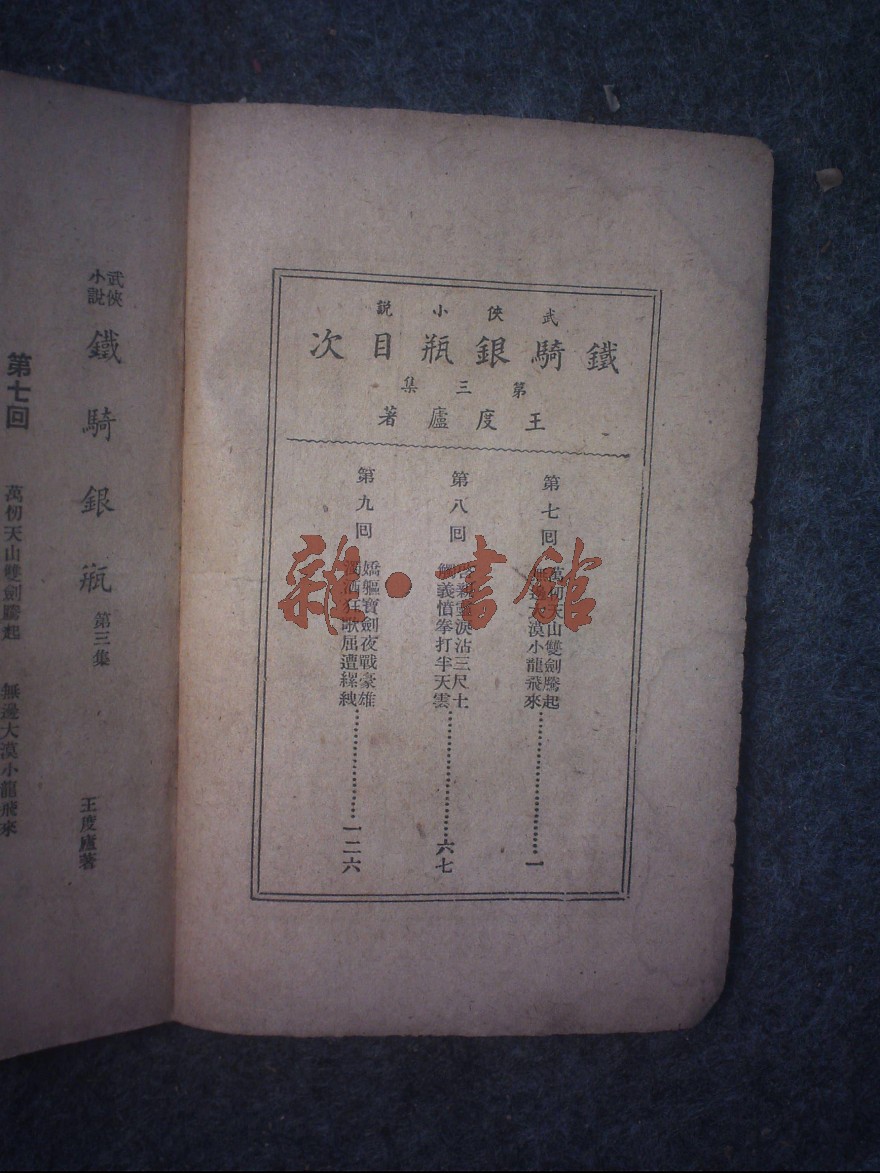 武俠小說
鐵騎銀瓶目次
第三集
王度廬著
第七回
萬仞天山雙劍騰起
無邊大漠小龍飛來
一
第八回
親靈淚沾三尺土
觸義憤拳打半天雲
六七
第九回
嬌軀寶劍夜戰豪雄
酒狂歌屈遭縲絏
一二六
武俠小說
鐵騎銀瓶
第三集
王度廬著
第七回
萬仞天山雙劍騰起
無邊大漠小龍飛來
雜·書館